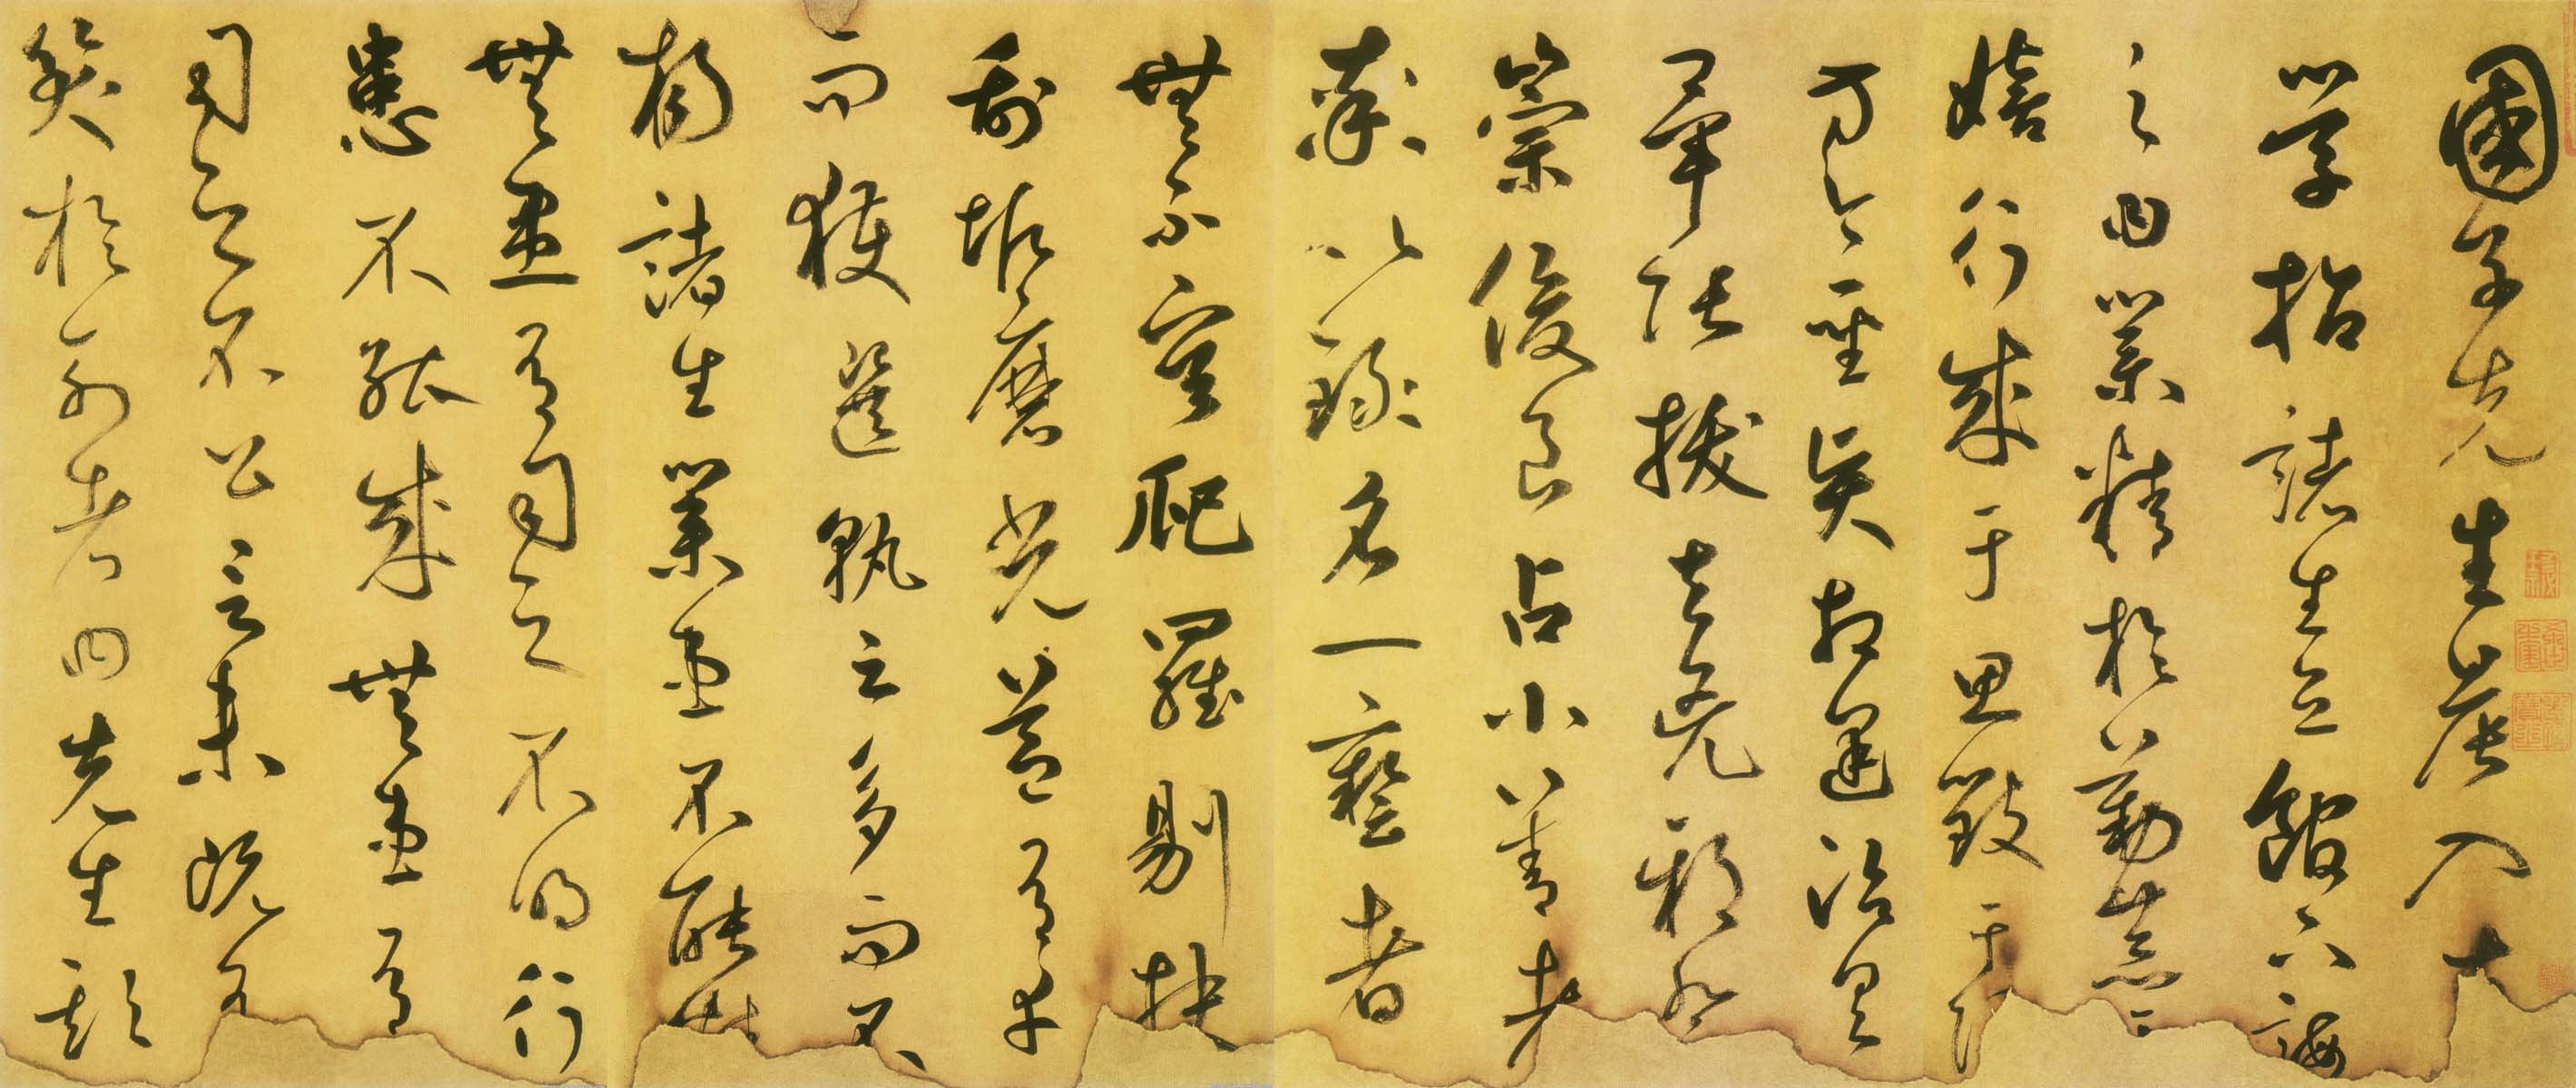 國子先生晨入大
學招諸生立館下誨
之曰業精於勤荒
嬉行成于思毀于
方今聖賢相逢治具
畢張拔去兇邪登
崇俊良占小善者
率以錄名一藝者
無不庸爬羅剔抉
刮垢磨光蓋有幸
而獲選孰云多而不
揚諸生業患不能
無患有司之不明行
患不能成無患有
司之不公言未既有
笑於列者曰先生欺